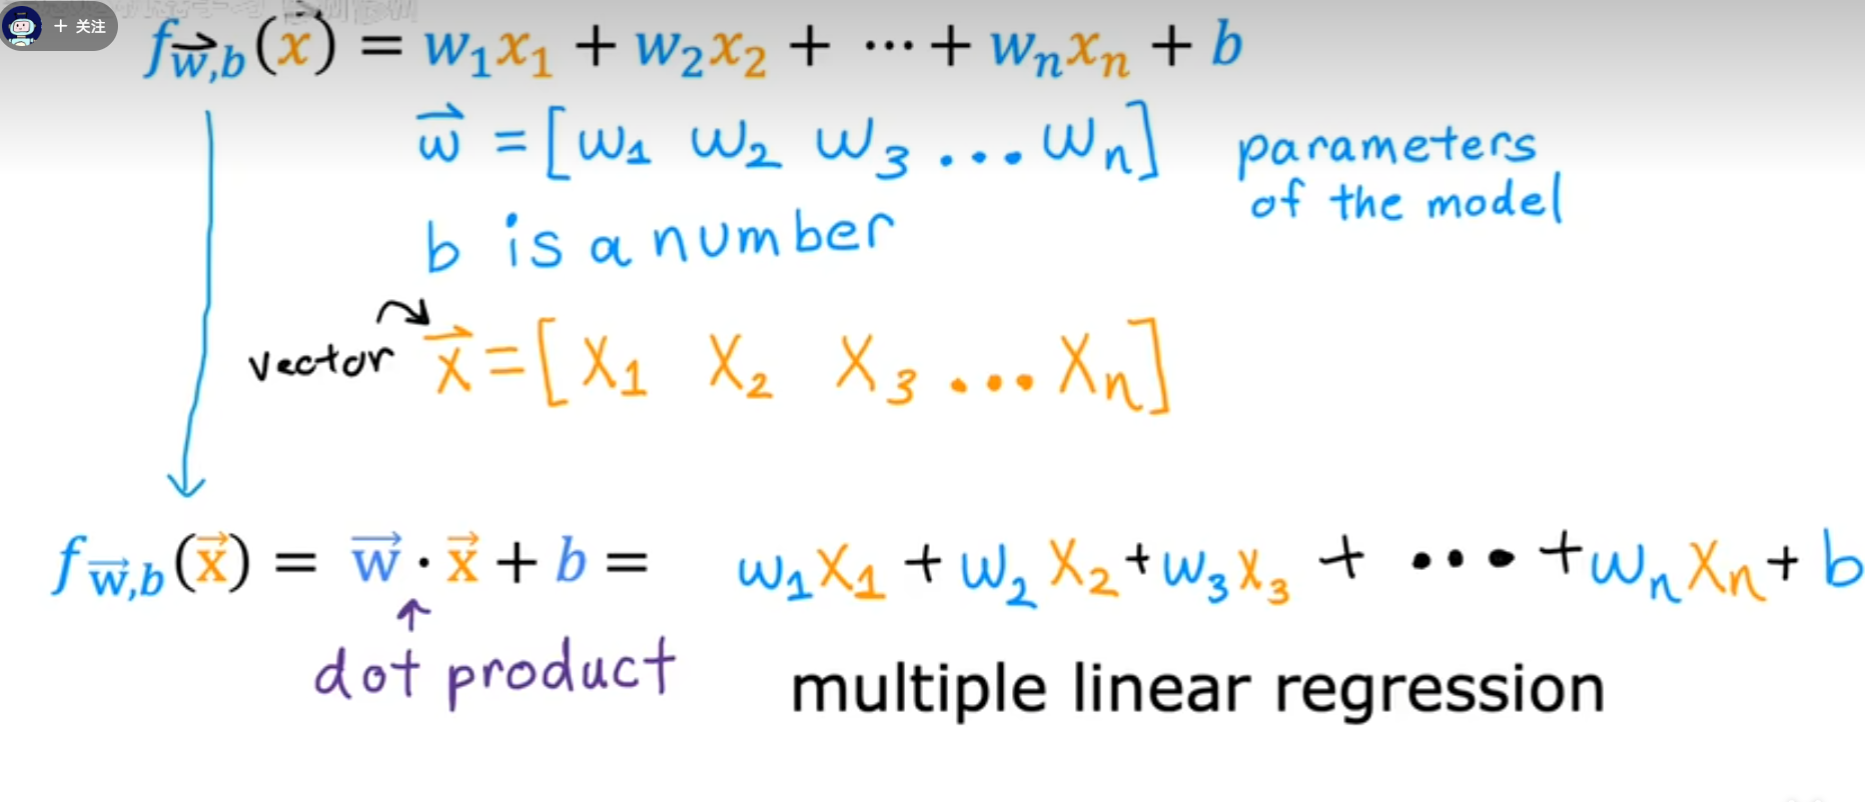 + 关注
f_{\vec{w},b}(\vec{x}) = w₁x₁ + w₂x₂ + ⋯ + wₙxₙ + b
\vec{w} = [w₁ w₂ w₃ ... wₙ] parameters
of the model
b is a number
vector \vec{x} = [x₁ x₂ x₃ ... xₙ]
f_{\vec{w},b}(\vec{x}) = \vec{w} · \vec{x} + b = w₁x₁ + w₂x₂ + w₃x₃ + ... + wₙxₙ + b
dot product
multiple linear regression